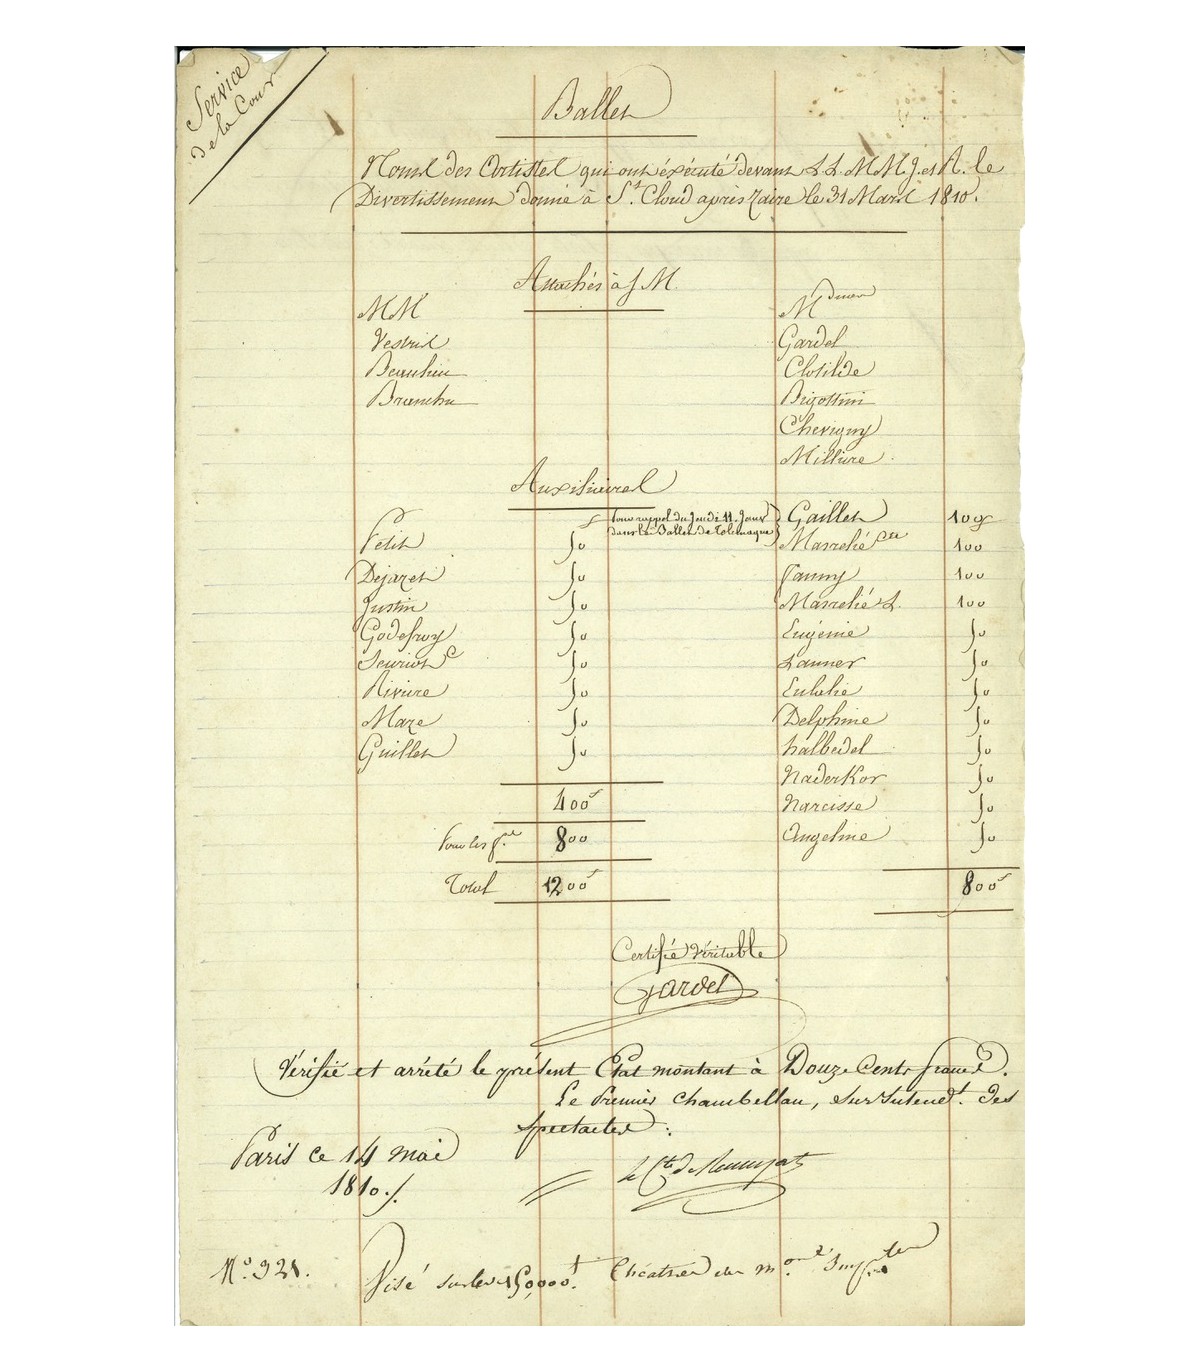 Service
de la Cour
Ballet
Noms des Artistes qui ont éxécuté devant L L. M M. J. et R. le
Divertissement donné à St. Cloud après Zaïre le 31 Mars 1810.
Attachés à S M.
MM Mdmes
Vestris Gardel
Beaulieu Clotilde
Branchu Bigottini
Chevigny
Millière
Auxiliaires
Pour rappel du Jeudi 11. Janv. Gaillet 100f
dans le Ballet de Télémaque
Petit 50 Masrelié Cte 100
Dejazet 50 Fanny 100
Justin 50 Masrelié L. 100
Godefroy 50 Eugénie 50
Seuriot C 50 Launer 50
Rivière 50 Eulalie 50
Maze 50 Delphine 50
Guillet 50 halbedel 50
Naderkor 50
400f Narcisse 50
Pour les fes 800 Angeline 50
Total 1200f 800f
Certifié Véritable
Gardel
Vérifié et arrêté le présent Etat montant à Douze Cents francs.
Le Premier Chambellan, Surintendt. des
Spectacles :
Paris ce 14 mai
1810./.
le Cte de Remusat
No. 921.
Visé sur les 150,000f. Théatres